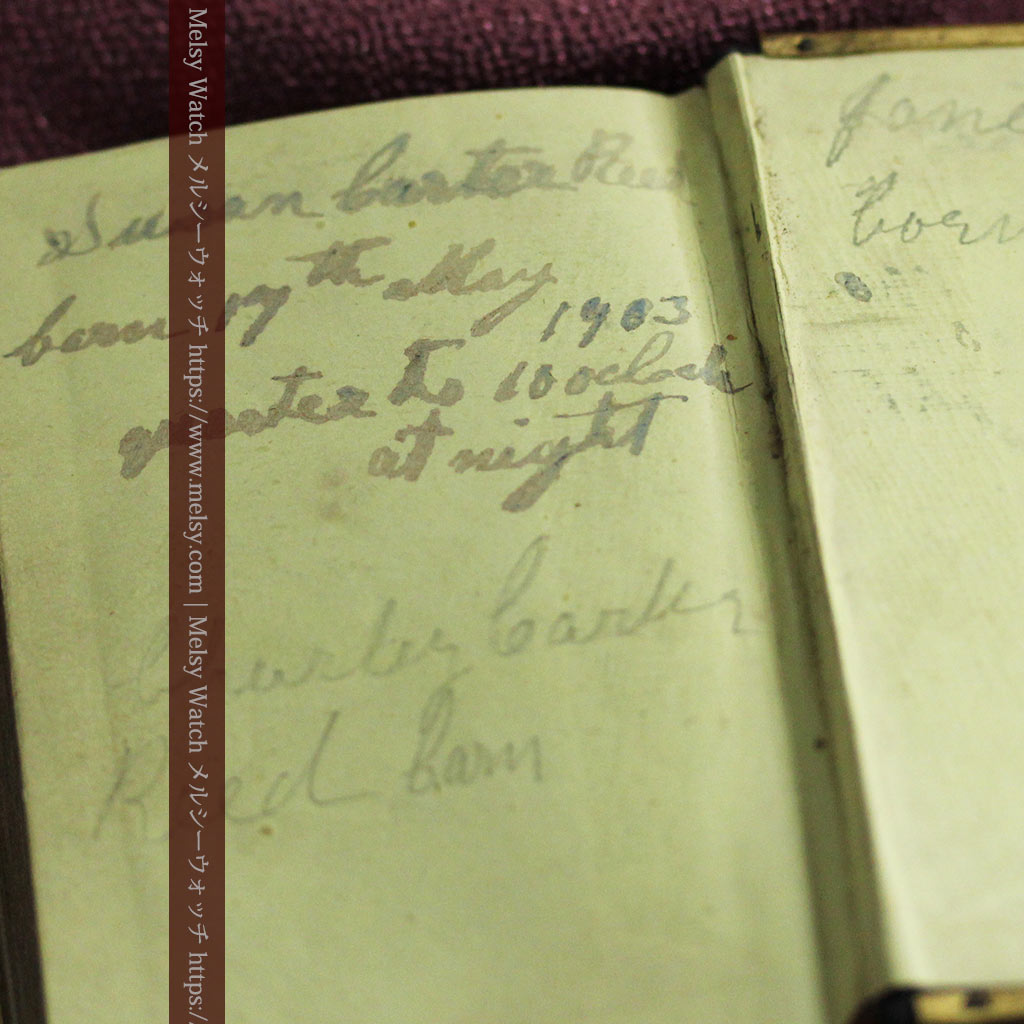 Susan Carter Reed
born 17th May
1903
quarter to 10 oclock
at night
Carter
Reed Born
Jane
born
Melsy Watch メルシーウォッチ https://www.melsy.com | Melsy Watch メルシーウォッチ https:/